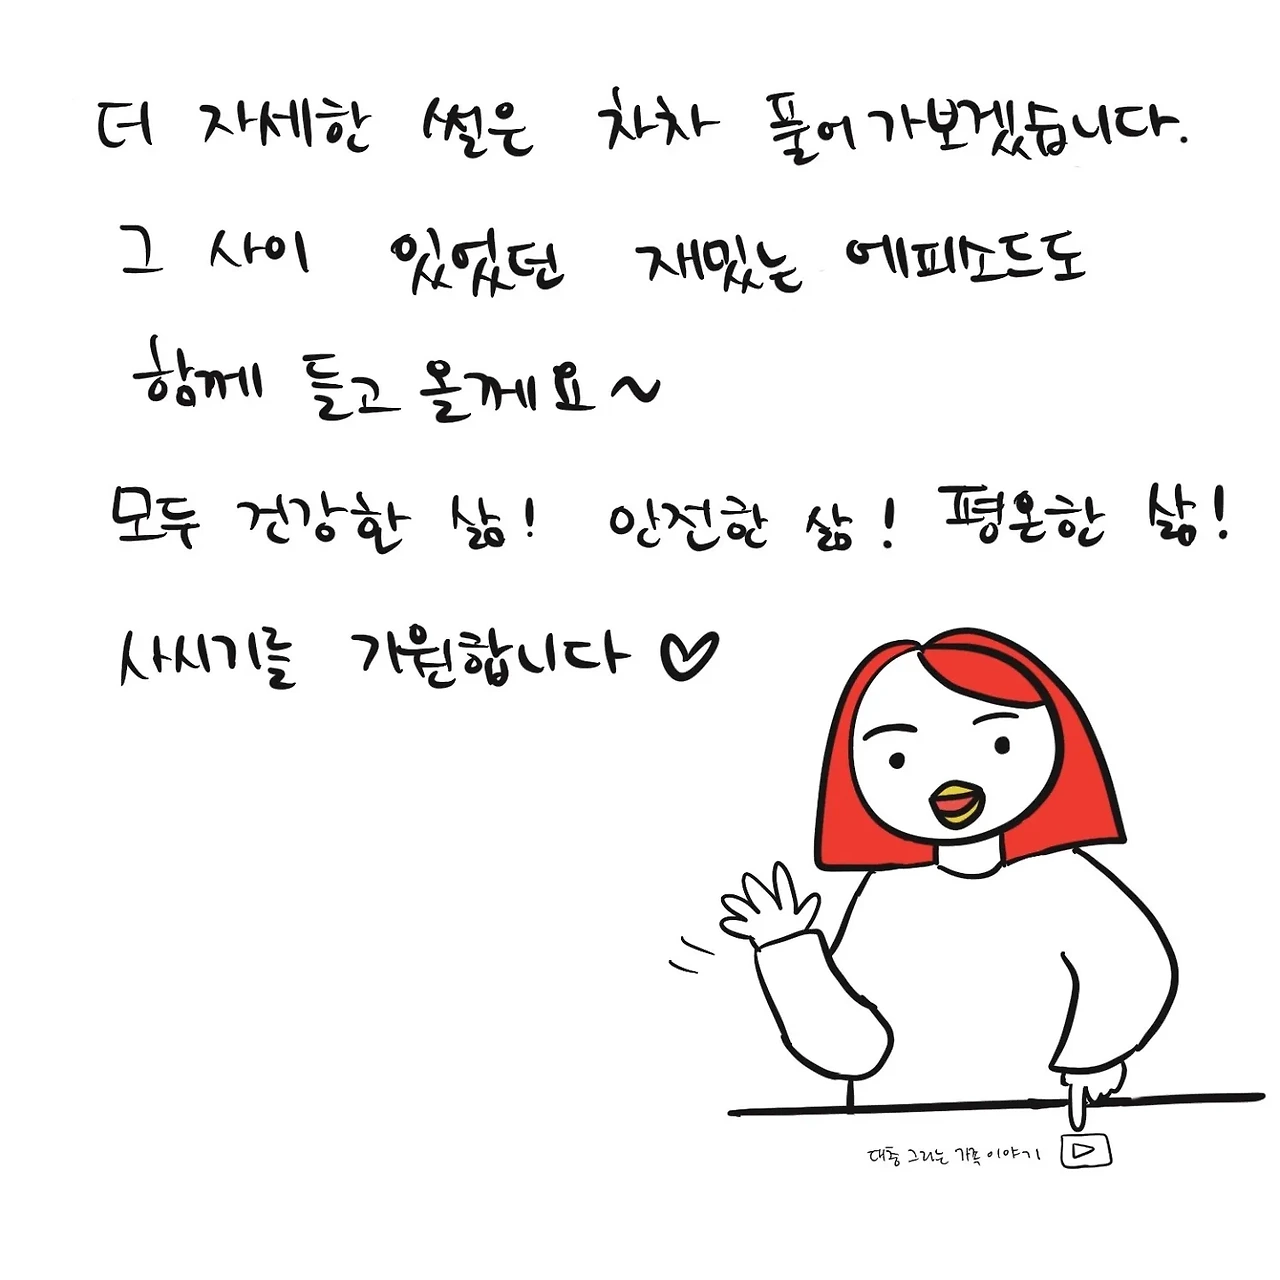 더 자세한 썰은 차차 풀어가보겠습니다.
그 사이 있었던 재밌는 에피소드도
함께 들고 올께요~
모두 건강한 삶! 안전한 삶! 평온한 삶!
사시기를 기원합니다♡
대충 그리는 가족 이야기